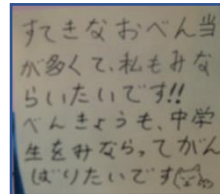 すてきなおべん当
が多くて、私もみな
らいたいです!!
べんきょうも、中学
生をみならってがん
ばりたいです